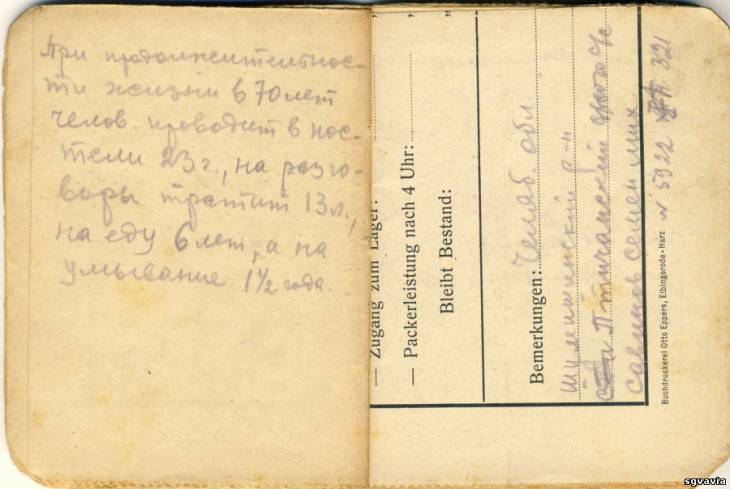 При продолжительнос-
ти жизни в 70 лет
челов. проводит в пос-
тели 23 г., на разго-
воры тратит 13 л.,
на еду 6 лет, а на
умывание 1½ года.
" "
— Zugang zum Lager:
— Packerleistung nach 4 Uhr:
Bleibt Bestand:
Bemerkungen: Челяб. обл.
р-н
Птичанский
Семен Мих
№ 5922 321
Buchdruckerei Otto Eppers, Elbingerode-Harz
sgvavia